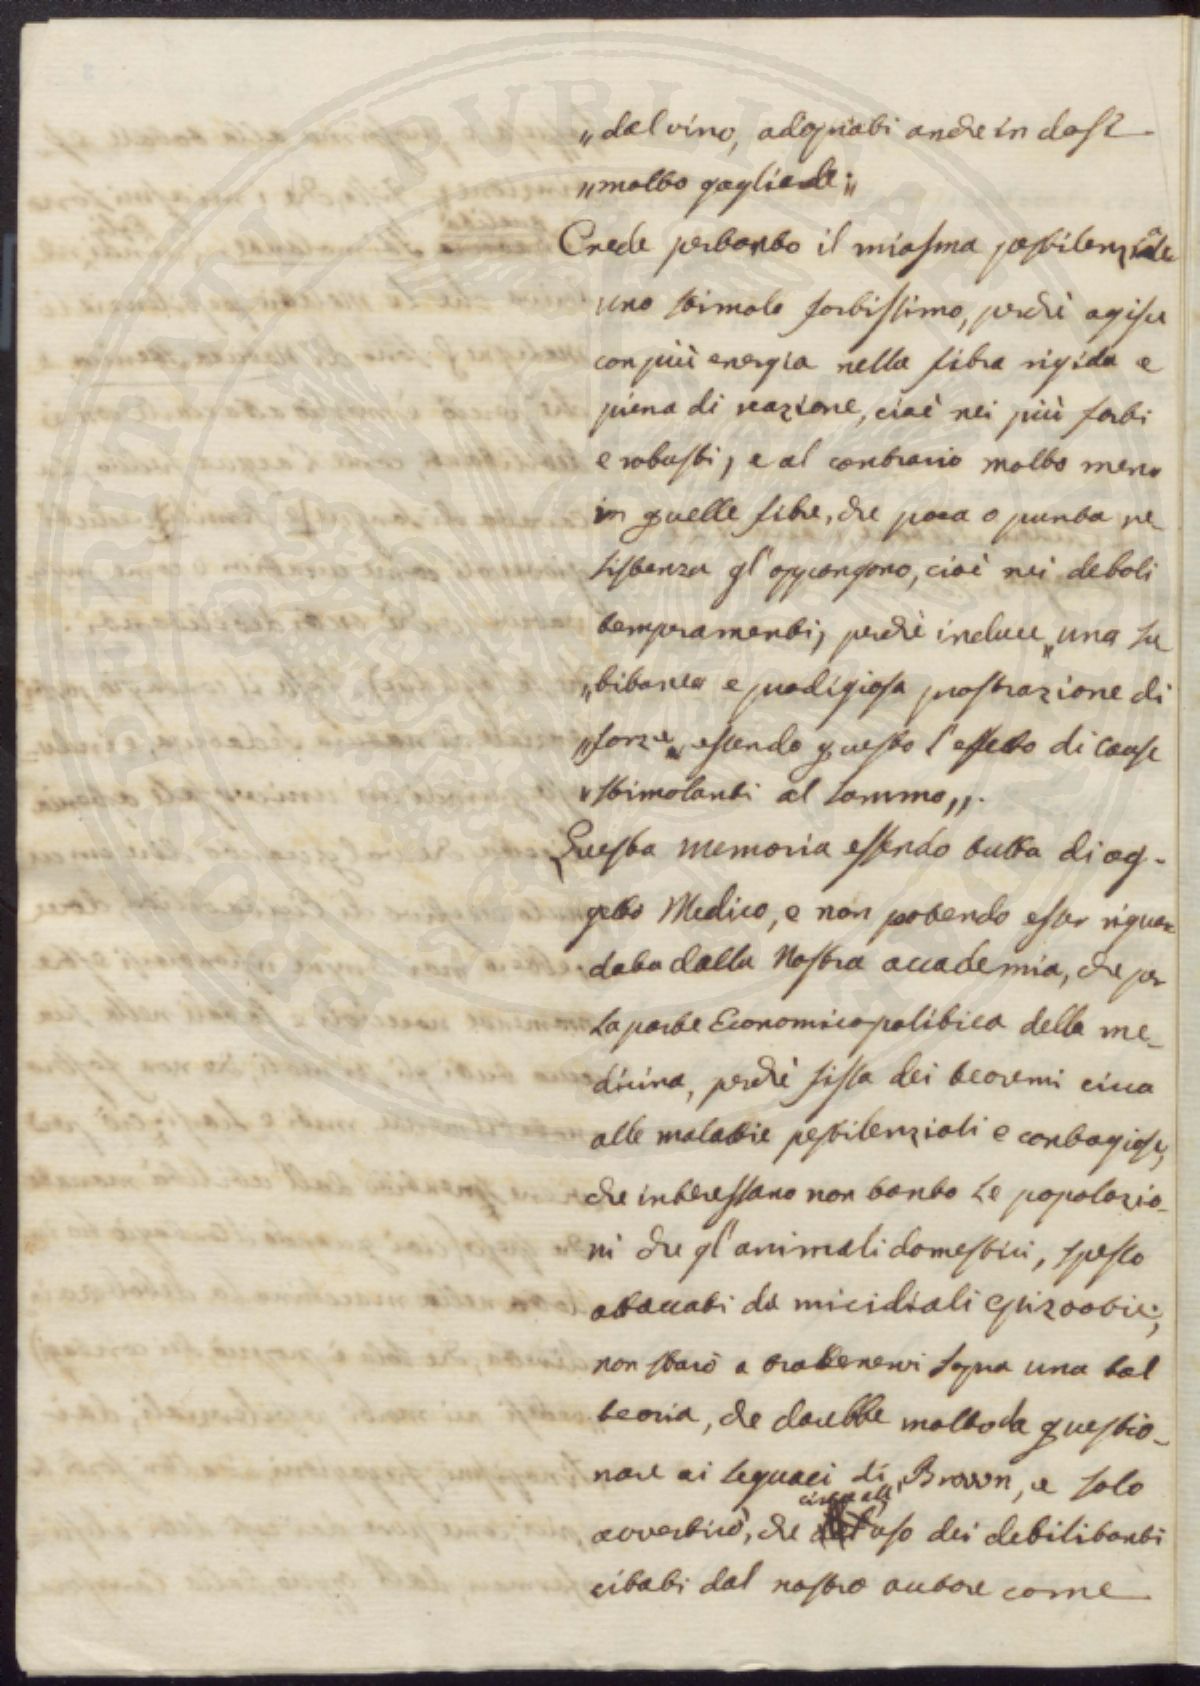 „ dal vino, adoprati anche in dosi
„ molto gagliarde „
Crede pertanto il miasma pestilenziale
uno stimolo fortissimo, perchè agisce
con più energia nella fibra rigida e
piena di reazione, cioè nei più forti
e robusti, e al contrario molto meno
in quelle fibre, che poca o punta re_
sistenza gl'oppongono, cioè nei deboli
temperamenti, perchè induce „ una su
„ bitanea e prodigiosa prostrazione di
„ forze „ essendo questo l'effetto di cause
„ stimolanti al sommo „.
Questa memoria essendo tutta di og-
getto Medico, e non potendo esser riguar
data dalla Nostra accademia, che per
la parte Economicopolitica della me_
dicina, perchè fissa dei teoremi circa
alle malattie pestilenziali e contagiose,
che interessano non tanto le popolazio_
ni che gl'animali domestici, spesso
attaccati da micidiali Epizootie;
non starò a trattenervi sopra una tal
teoria, che darebbe molto da questio_
nare ai seguaci di Brown, e solo
circa all'
avvertirò, che uso dei debilitanti
citati dal nostro autore come